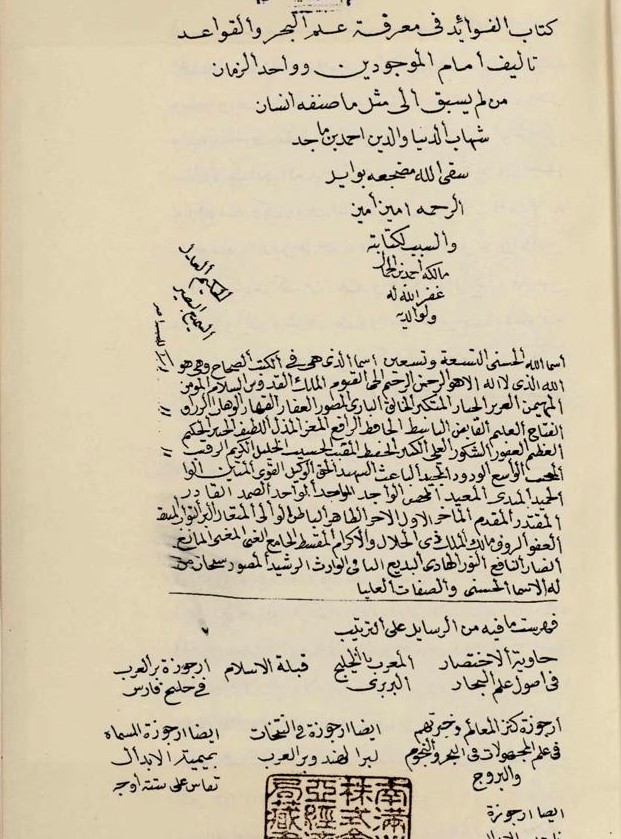 كتاب الفوائد في معرفة علم البحر والقواعد
تاليف امام الموجودين وواحد الزمان
من لم يسبق الى مثل ما صنفه انسان
شهاب الدنيا والدين احمد بن ماجد
سقى الله مضجعه بوابل
الرحمه امين امين
والسبب لكتابته
مالكه احمد بن
غفر الله له
ولوالديه
الحكيم العدل
السميع البصير
اسما الله الحسنى التسعة وتسعين اسما الذي هي في الكتب الصحاح وهي هو
الله الذي لا اله الا هو الرحمن الرحيم الحي القيوم الملك القدوس السلام المومن
المهيمن العزيز الجبار المتكبر الخالق الباري المصور الغفار القهار الوهاب الرزو
الفتاح العليم القابض الباسط الحافظ الرافع المعز المذل اللطيف الخبير الحكيم
العظيم الغفور الشكور العلي الكبير الحفيظ المقيت الحسيب الجليل الكريم الرقيب
المجيب الواسع الودود المجيد الباعث الشهيد الحق الوكيل القوي المتين الوا
الحميد المبدي المعيد المحصي الواجد الواحد الصمد القادر
المقتدر المقدم الماخر الاول الاخر الظاهر الباطن الوالي المتعال البر التواب
العفو الروف مالك الملك ذي الجلال والاكرام المقسط الجامع الغني المغني المانع
الضار النافع النور الهادي البديع الباقي الوارث الرشيد الصبور سبحان من
له الاسما الحسنى والصفات العليا
فهرست ما فيه من الرسايل على الترتيب
حاوية الاختصار في اصول علم البحار
المعربه الخليج البربري
قبلة الاسلام
ارجوزة بر العرب في خليج فارس
ارجوزة كنز المعالمه وذخرتهم في علم المجهولات في البحر والنجوم والبروج
ايضا ارجوزة في النتخات لبر الهند وبر العرب
ايضا ارجوزة المسماه بميمية الابدال تقاس على ستة اوجه
ايضا ارجوزة
南滿
株式會
亞經濟
局藏